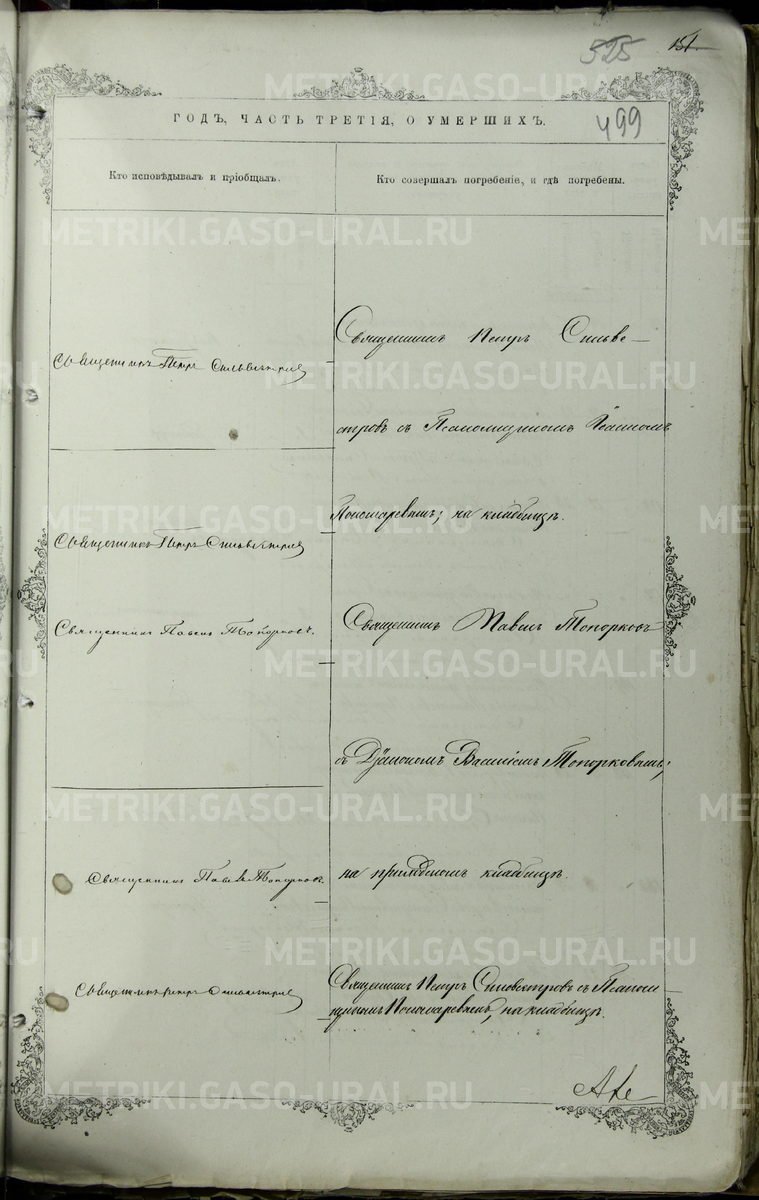 525
151
ГОДЪ, ЧАСТЬ ТРЕТІЯ, О УМЕРШИХЪ.
499
Кто исповѣдывалъ и пріобщалъ.
Кто совершалъ погребеніе, и гдѣ погребены.
Священникъ Петръ Сильвестровъ
Священникъ Петръ Сильве-
стровъ съ Псаломщикомъ Іоанномъ
Пономаревымъ; на кладбищѣ.
Священникъ Петръ Сильвестровъ
Священникъ Павелъ Топорковъ.
Священникъ Павелъ Топорковъ
съ Діакономъ Василіемъ Топорковымъ;
на приходскомъ кладбищѣ.
Священникъ Павелъ Топорковъ.
Священникъ Петръ Сильвестровъ
Священникъ Петръ Сильвестровъ съ Псалом-
щикомъ Пономаревымъ, на кладбищѣ.
METRIKI.GASO-URAL.RU